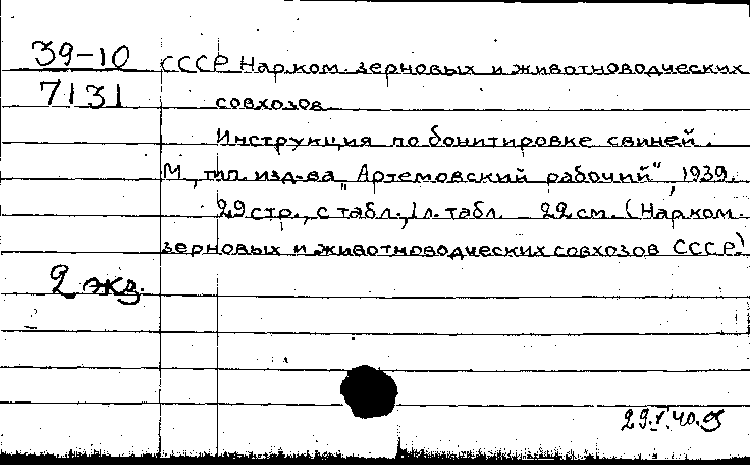 39-10
СССР. Нарком. зерновых и животноводческих
7131
совхозов.
Инструкция по бонитировке свиней.
М., тип. изд-ва „Артемовский рабочий", 1939.
29 стр., с табл., 1 л. табл. 22 см. (Нарком.
зерновых и животноводческих совхозов СССР)
2 экз.